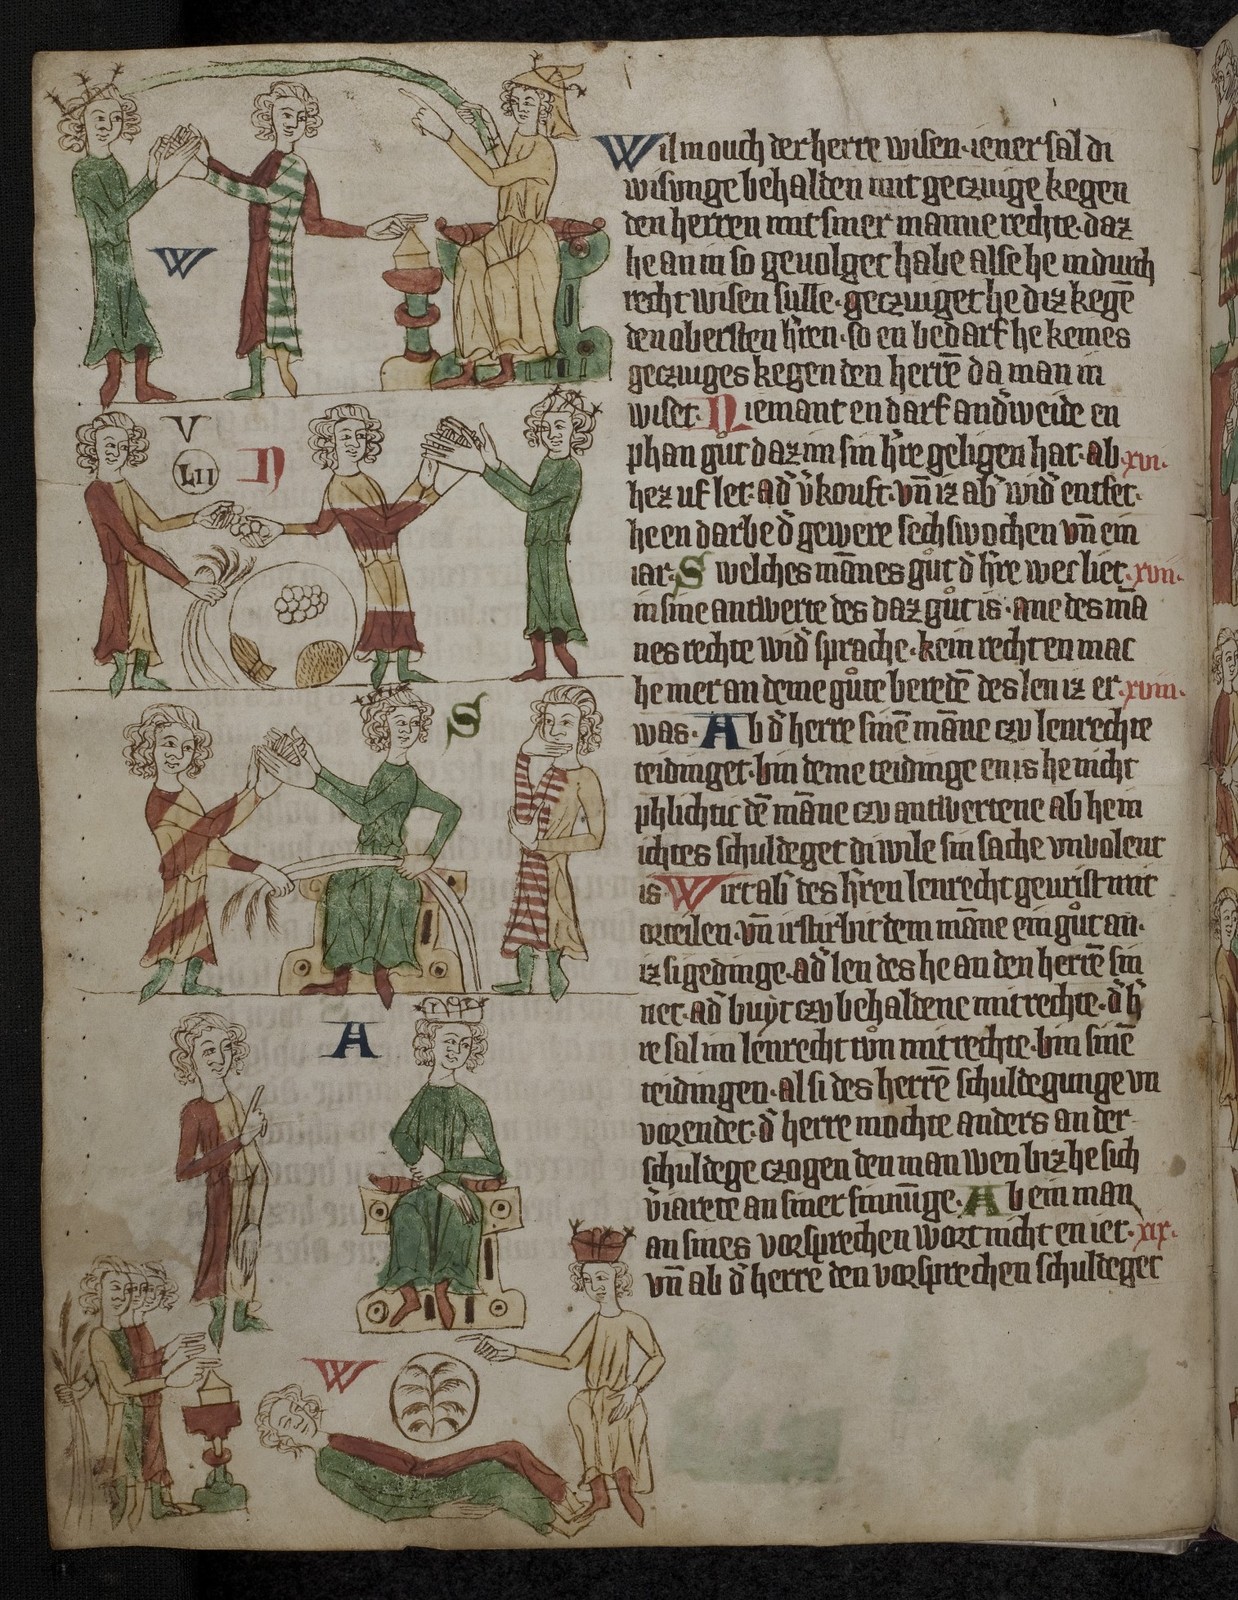 W
V
LII
N
S
A
W
Wil in ouch der herre wisen· iener sal di
wisunge behalden mit geczuge kegen
den herren mit siner manne rechte· daz
he an in so geuolget habe alse he in durch
recht wisen sulle· geczuget he diz kegē
den obersten h̄ren· so en bedarf he keines
geczuges kegen den herrē da man in
wiset· Niemant en darf and̄weide en
phan gůt daz im sin h̄re geligen hat· ab xvi·
hez uf let· ad̄ v̄kouft· vn̄ iz ab̄ wid̄ entfet·
he en darbe d̄ gewere sechs wochen vn̄ ein
iar· Swelches mānes gůt d̄ h̄re wec liet· xvii·
in sine antwerte des daz gůt is· ane des mā
nes rechte wid̄ sprache· kein recht en mac
he mer an deme gůte beredē des len iz er xviii·
was· Ab d̄ herre sinē māne czu lenrechte
teidinget· bin deme teidinge en is he nicht
phlichtic dē māne czv antwertene ab he in
ichtes schuldeget di wile sin sache vnvolent
is Wirt ab̄ des h̄ren lenrecht gewist mit
orteilen· vn̄ irstirbit dem māne ein gůt an·
iz si gedinge· ad̄ len des he an den herrē sin
net· ad̄ butyt czv behaldene mit rechte· d̄ h̄
re sal im lenrecht tůn mit rechte· bin sinē
teidingen· al si des herrē schuldegunge vn
vorendet· d̄ herre mochte anders an der
schuldege czogen den man wen biz he sich
v̄iarete an siner sinnūge· Ab ein man
an sines vorsprechen wort nicht en iet· xix·
vn̄ ab d̄ herre den vorsprechen schuldeget